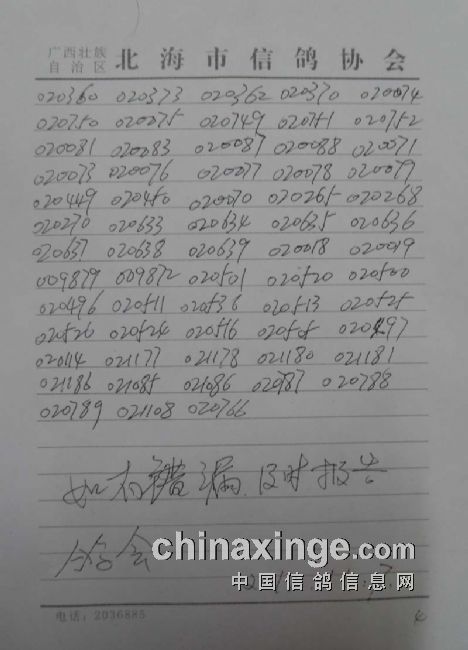 广西壮族
自治区
北海市信鸽协会
020360 020373 020362 020370 020074
020750 020075 020749 020751 020752
020081 020083 020087 020088 020071
020073 020076 020077 020078 020079
020449 020450 020070 020265 020268
020270 020633 020634 020635 020636
020637 020638 020639 020018 020019
009879 009872 020501 020520 020500
020496 020511 020536 020513 020525
020526 020524 020516 020505 020497
020114 021177 021178 021180 021181
021186 021085 021086 020787 020788
020789 021108 020766
如有错漏及时报告
协会
chinaxinge.com
中国信鸽信息网
电话：2036885